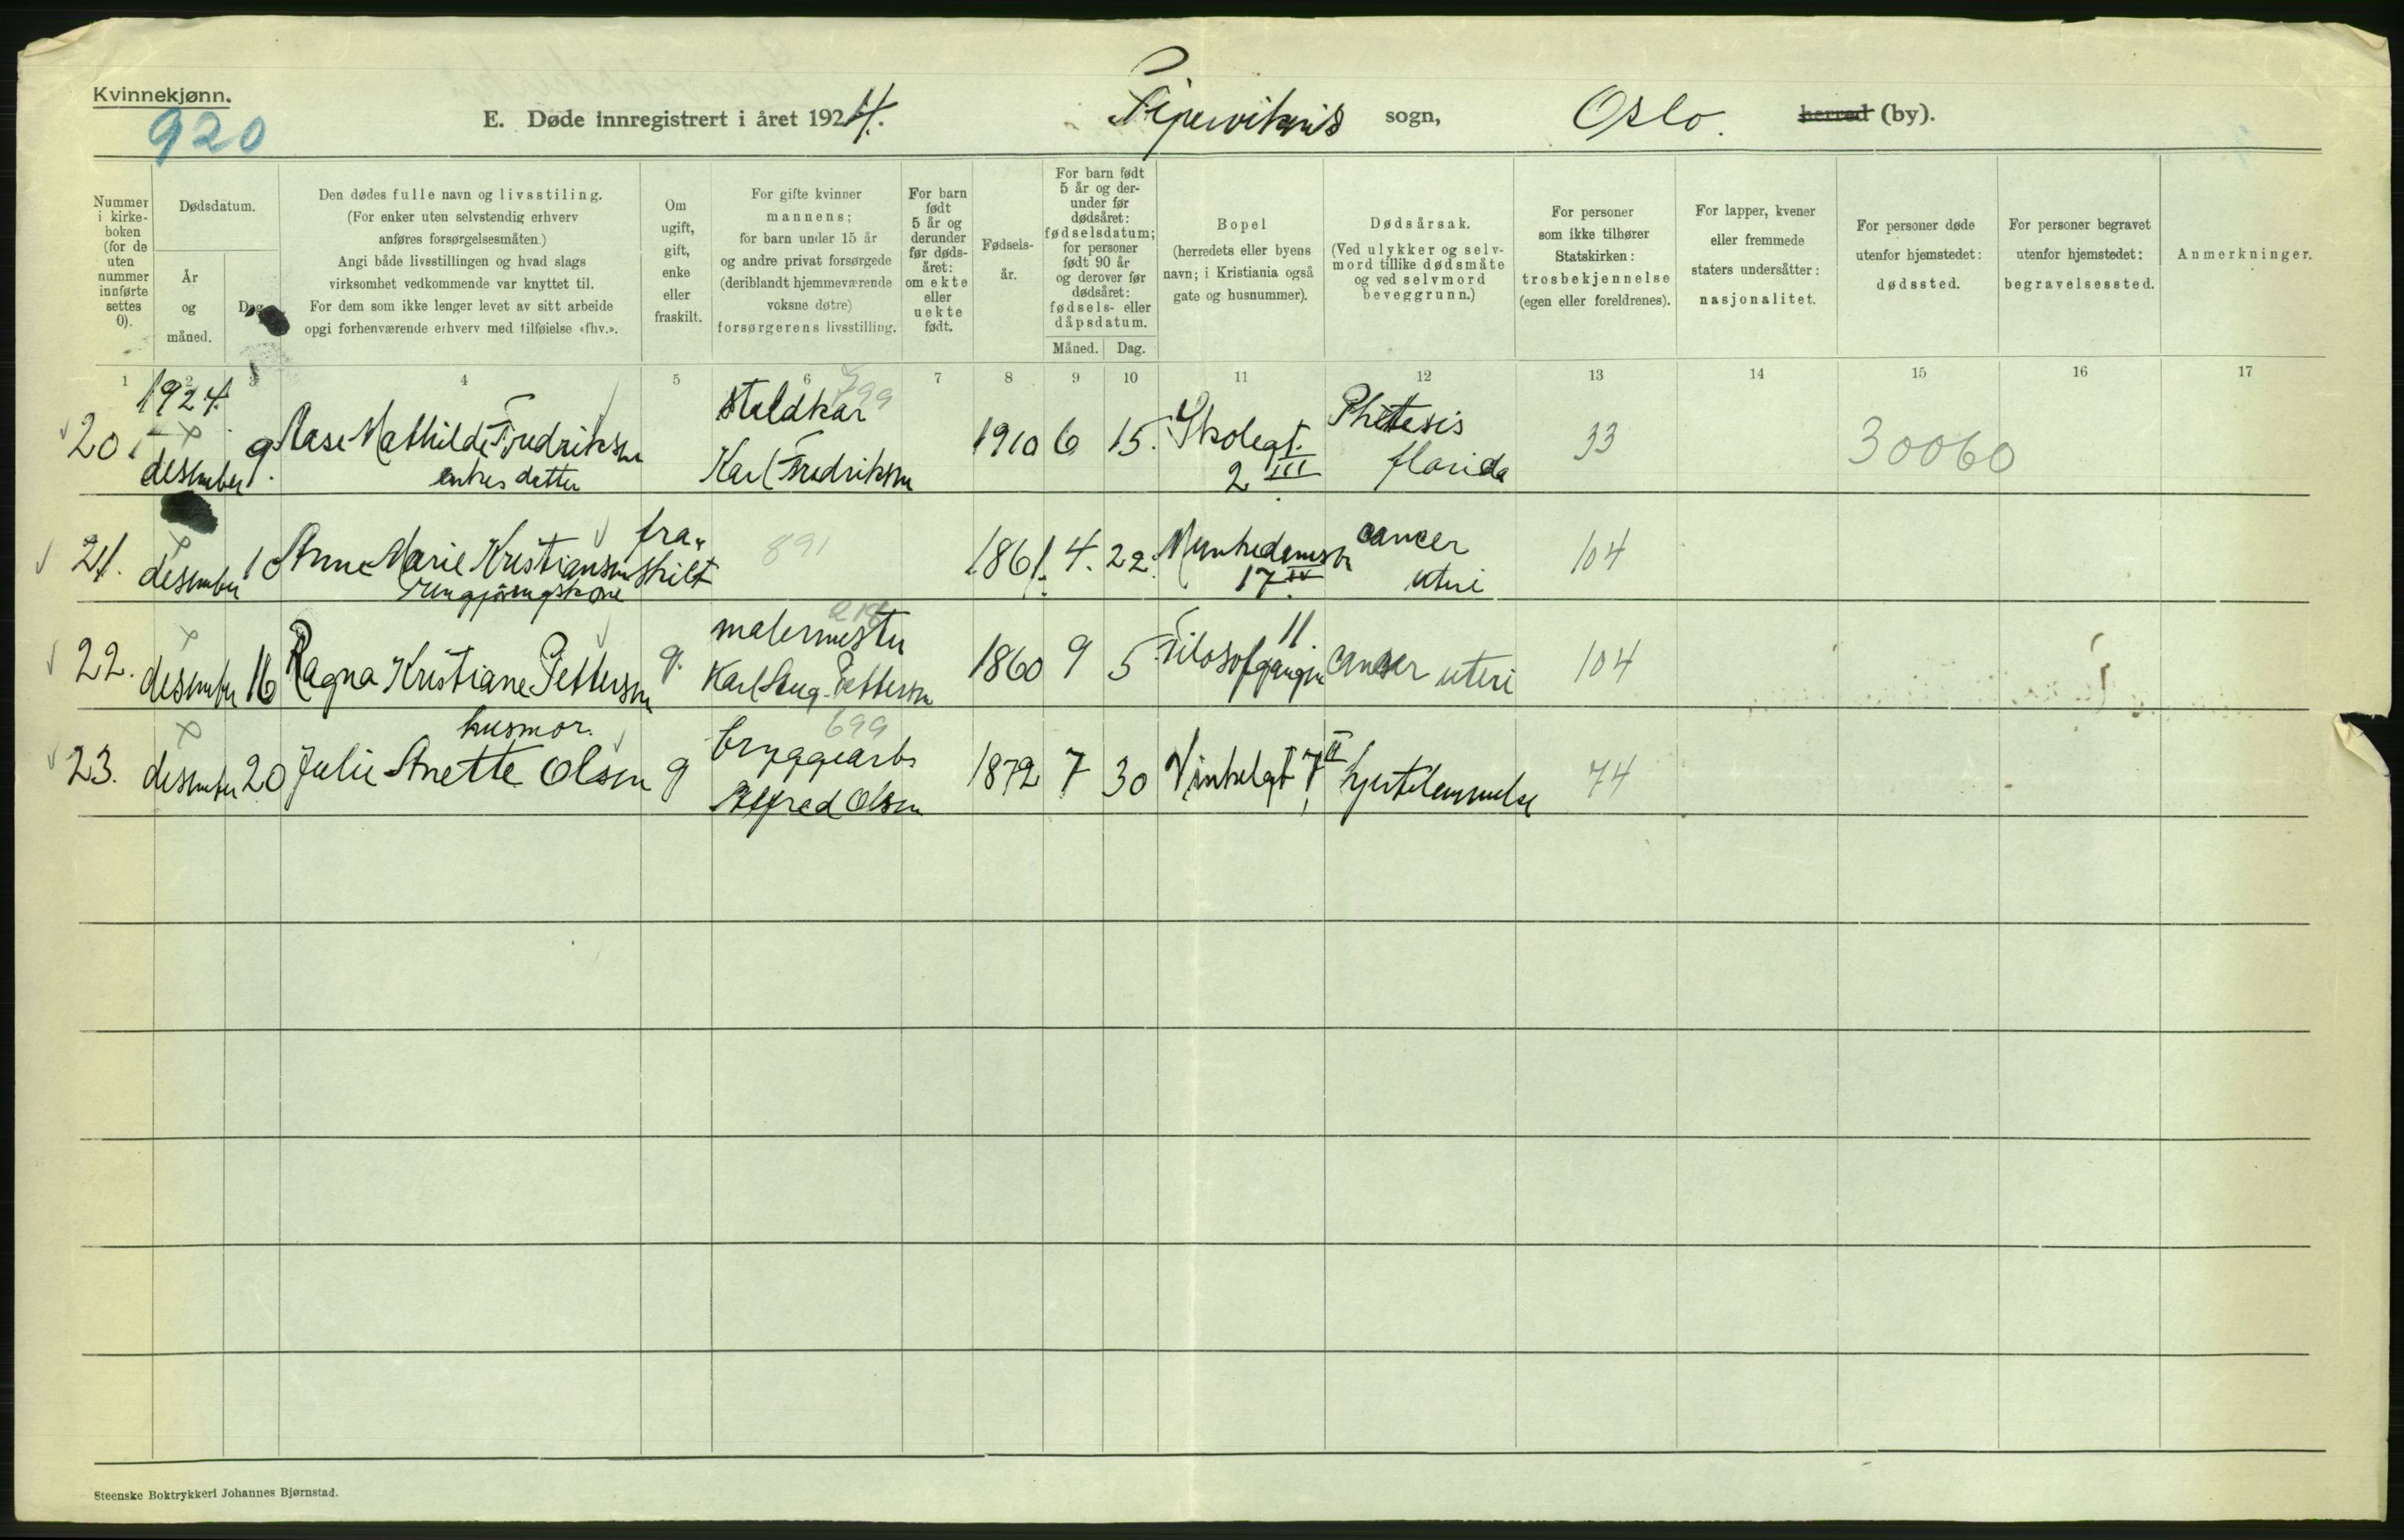 Kvinnekjønn.
920
E. Døde innregistrert i året 1924. Pipervikens sogn, Oslo. herred (by).
Nummer i kirkeboken (for de uten nummer innførte settes 0).
Dødsdatum.
År og måned.
Dag.
Den dødes fulle navn og livsstiling.
(For enker uten selvstendig erhverv
anføres forsørgelsesmåten.)
Angi både livsstillingen og hvad slags
virksomhet vedkommende var knyttet til.
For dem som ikke lenger levet av sitt arbeide
opgi forhenværende erhverv med tilføielse «fhv.».
Om
ugift,
gift,
enke
eller
fraskilt.
For gifte kvinner
mannens;
for barn under 15 år
og andre privat forsørgede
(deriblandt hjemmeværende
voksne døtre)
forsørgerens livsstilling.
For barn
født
5 år og
derunder
før døds-
året:
om ekte
eller
uekte
født.
Fødsels-
år.
For barn født
5 år og der-
under før
dødsåret:
fødselsdatum;
for personer
født 90 år
og derover før
dødsåret:
fødsels- eller
dåpsdatum.
Måned. Dag.
Bopel
(herredets eller byens
navn; i Kristiania også
gate og husnummer).
Dødsårsak.
(Ved ulykker og selv-
mord tillike dødsmåte
og ved selvmord
beveggrunn.)
For personer
som ikke tilhører
Statskirken:
trosbekjennelse
(egen eller foreldrenes).
For lapper, kvener
eller fremmede
staters undersåtter:
nasjonalitet.
For personer døde
utenfor hjemstedet:
dødssted.
For personer begravet
utenfor hjemstedet:
begravelsessted.
Anmerkninger.
1 2 3 4 5 6 7 8 9 10 11 12 13 14 15 16 17
1924.
20. desember 9. Aase Mathilde Fredriksen
enkes datter
staldkar
Karl Fredriksen
1910 6 15. Skolegt.
2 III
Phthesis
florida
33 30060
21. desember 10 Anne Marie Kristiansen
Rengjøringskone
fra-
skilt
891 1861. 4. 22. Munkedamsv
17 IV
cancer
uteri
104
22. desember 16 Ragna Kristiane Pettersen
husmor.
g. malermester
Karl Aug. Pettersen
1860 9 5 Filosofgangen 11. cancer uteri 104
23. desember 20 Julie Anette Olsen g
699
bryggearb.
Alfred Olsen
1872 7 30 Vinkelgt 7 II hjertelammelse 74
Steenske Boktrykkeri Johannes Bjørnstad.